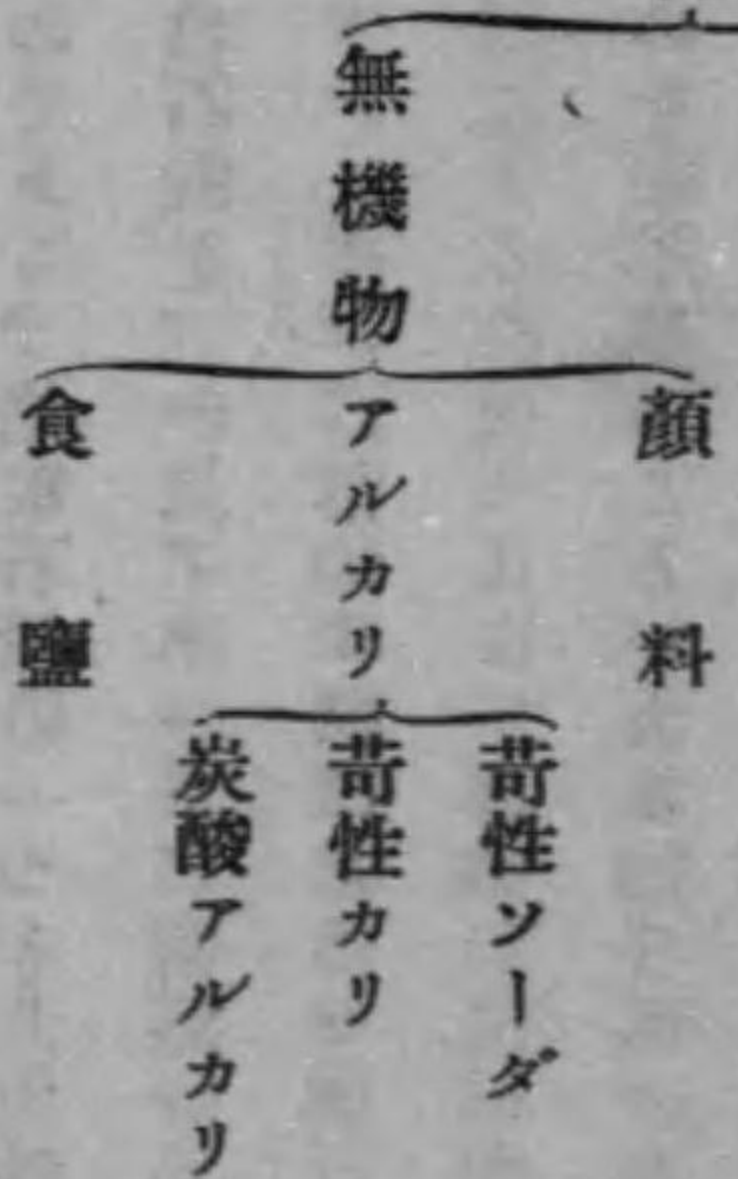 無機物
顔料
アルカリ
苛性ソーダ
苛性カリ
炭酸アルカリ
食鹽